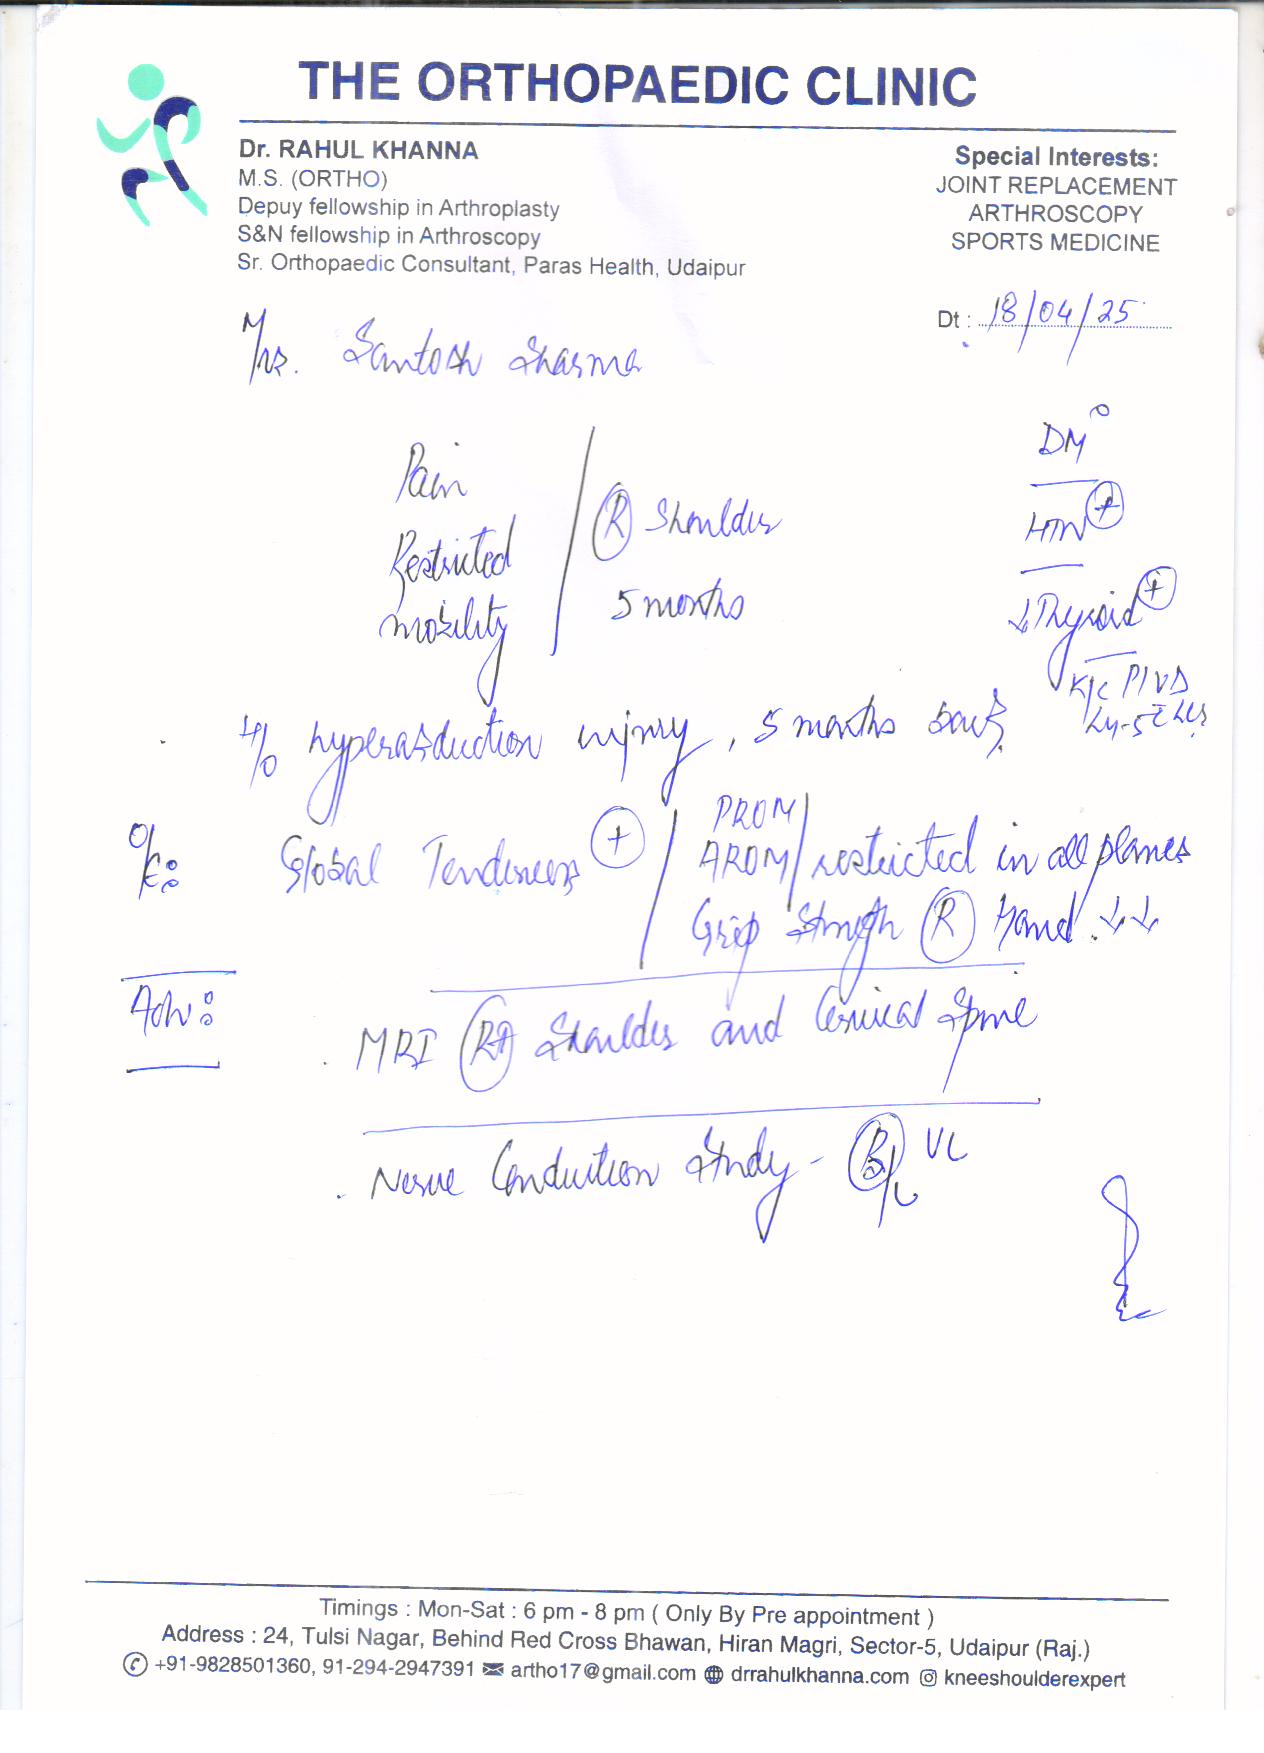 THE ORTHOPAEDIC CLINIC
Dr. RAHUL KHANNA
M.S. (ORTHO)
Depuy fellowship in Arthroplasty
S&N fellowship in Arthroscopy
Sr. Orthopaedic Consultant, Paras Health, Udaipur
Special Interests:
JOINT REPLACEMENT
ARTHROSCOPY
SPORTS MEDICINE
Dt : 18/04/25
Mrs. Santosh Sharma
Pain
Restricted
mobility
R Shoulder
5 months
DM°
HTN +
↓Thyroid +
K/c PIVD
H/o hyperabduction injury, 5 months back
O/E: Global Tenderness +
PROM/
AROM/ restricted in all planes
Grip Strength R Hand ↓↓
Adv:
. MRI Rt Shoulder and Cervical Spine
. Nerve Conduction Study - B/L UL
Timings : Mon-Sat : 6 pm - 8 pm ( Only By Pre appointment )
Address : 24, Tulsi Nagar, Behind Red Cross Bhawan, Hiran Magri, Sector-5, Udaipur (Raj.)
+91-9828501360, 91-294-2947391 artho17@gmail.com drrahulkhanna.com kneeshoulderexpert